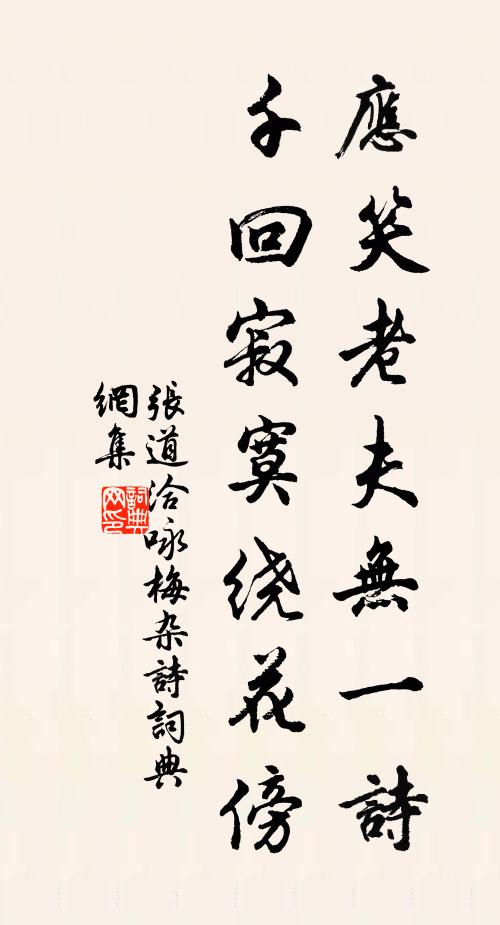 應笑老夫無一詩
千回寂寞绕花傍
張道洽咏梅杂詩詞典
網集
詞典
网印